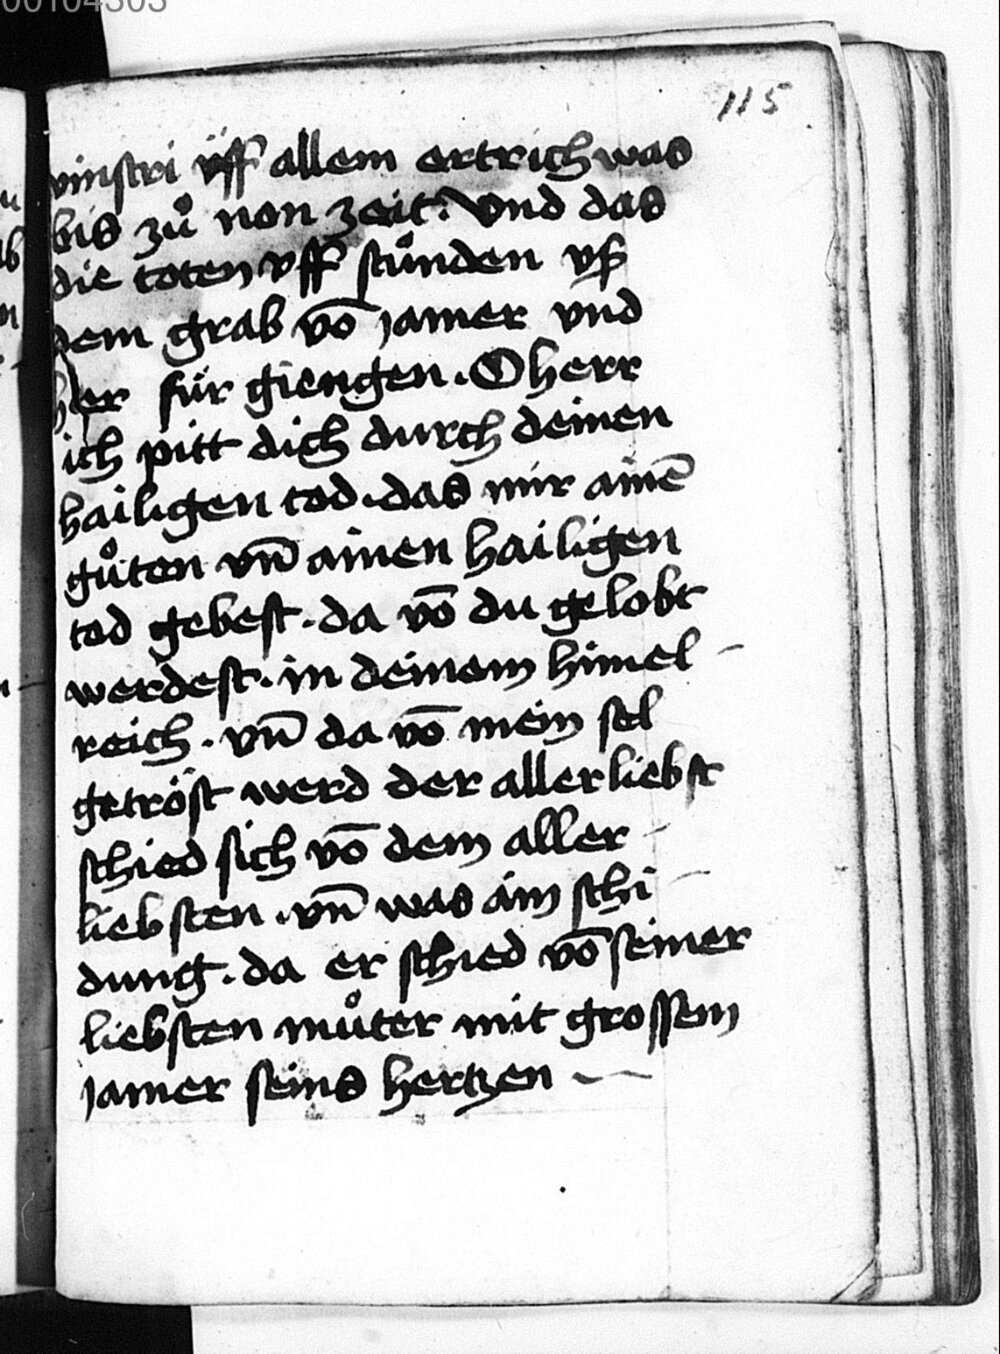 00104303
115
vinstri vͤff allem ertrich was
bis zuͦ non zeit. Vnd das
die toten vff stuͦnden vß
dem grab vō jamer vnd
her fuͤr giengen. O herr
ich pitt dich durch deinen
hailigen tod. das mir ainē
guͦten vn̄ ainen hailigen
tod gebest. da vō du gelobt
werdest. in deinem himel-
reich. vn̄ da vō mein sel
getröst werd der allerliebst
schied sich vō dem aller-
liebsten. vn̄ was ain schi-
dung. da er schied vō seiner
liebsten muͦter mit grossem
jamer seins hertzen